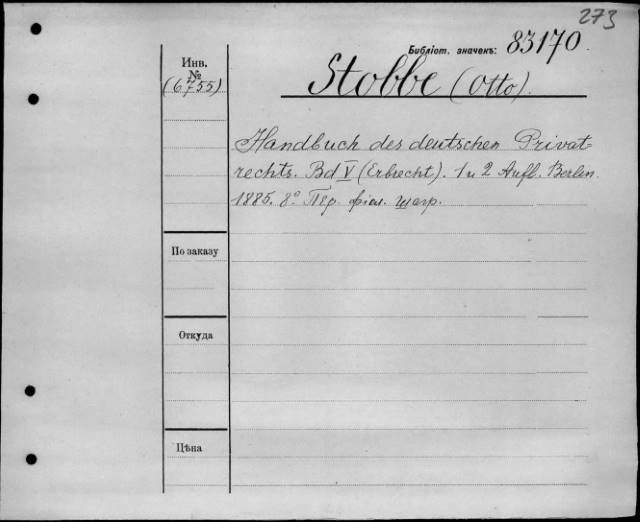 273
Библіот. значекъ: 83170.
Инв.
№
(6755)
Stobbe (Otto).
Handbuch des deutschen Privat=
rechts. Bd V (Erbrecht). 1 u 2 Aufl. Berlin.
1885. 8° Пер. фіол. шагр.
По заказу
Откуда
Цѣна